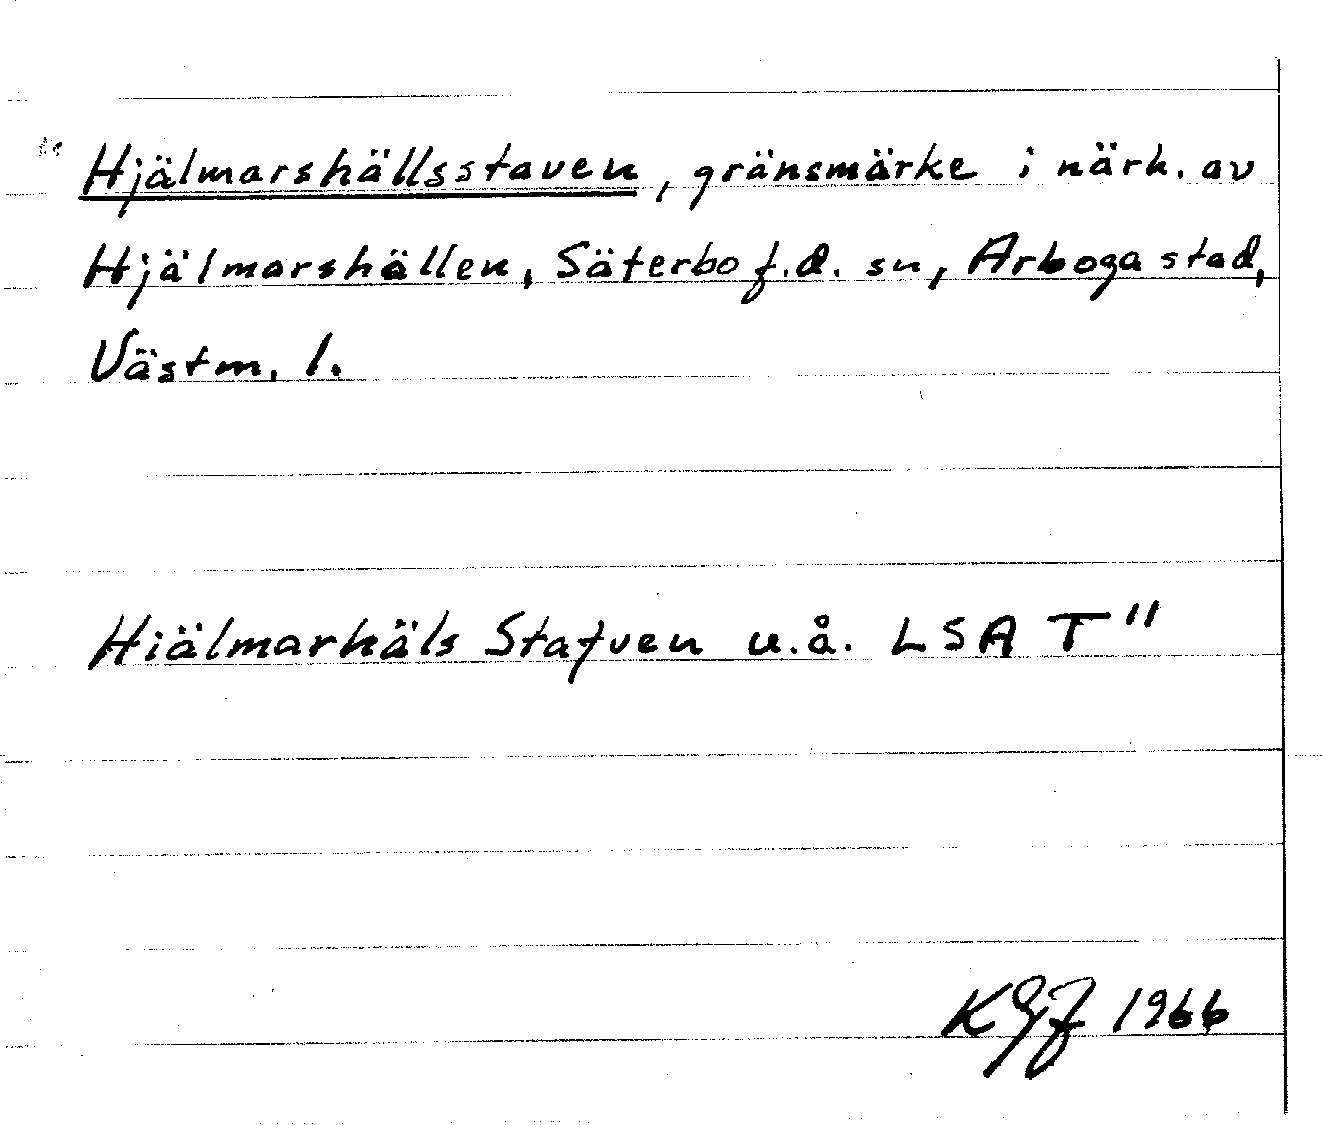 Hjälmarshällsstaven, gränsmärke i närh. av
Hjälmarshällen, Säterbo f.d. sn, Arboga stad,
Västm. l.
Hiälmarhäls Stafven u.å. LSA T"
1966